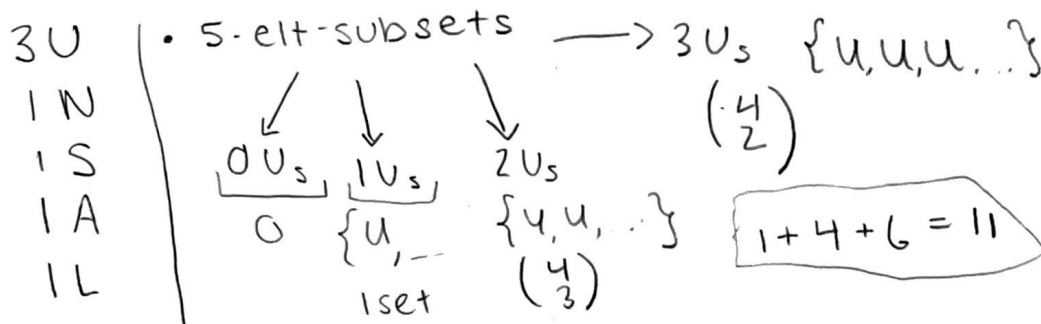 3U
1N
1S
1A
1L
• 5-elt-subsets → 3Us {u,u,u,...}
(4 2)
0Us 1Us 2Us
0 {u,... {u,u,...}
1set (4 3)
1+4+6 = 11